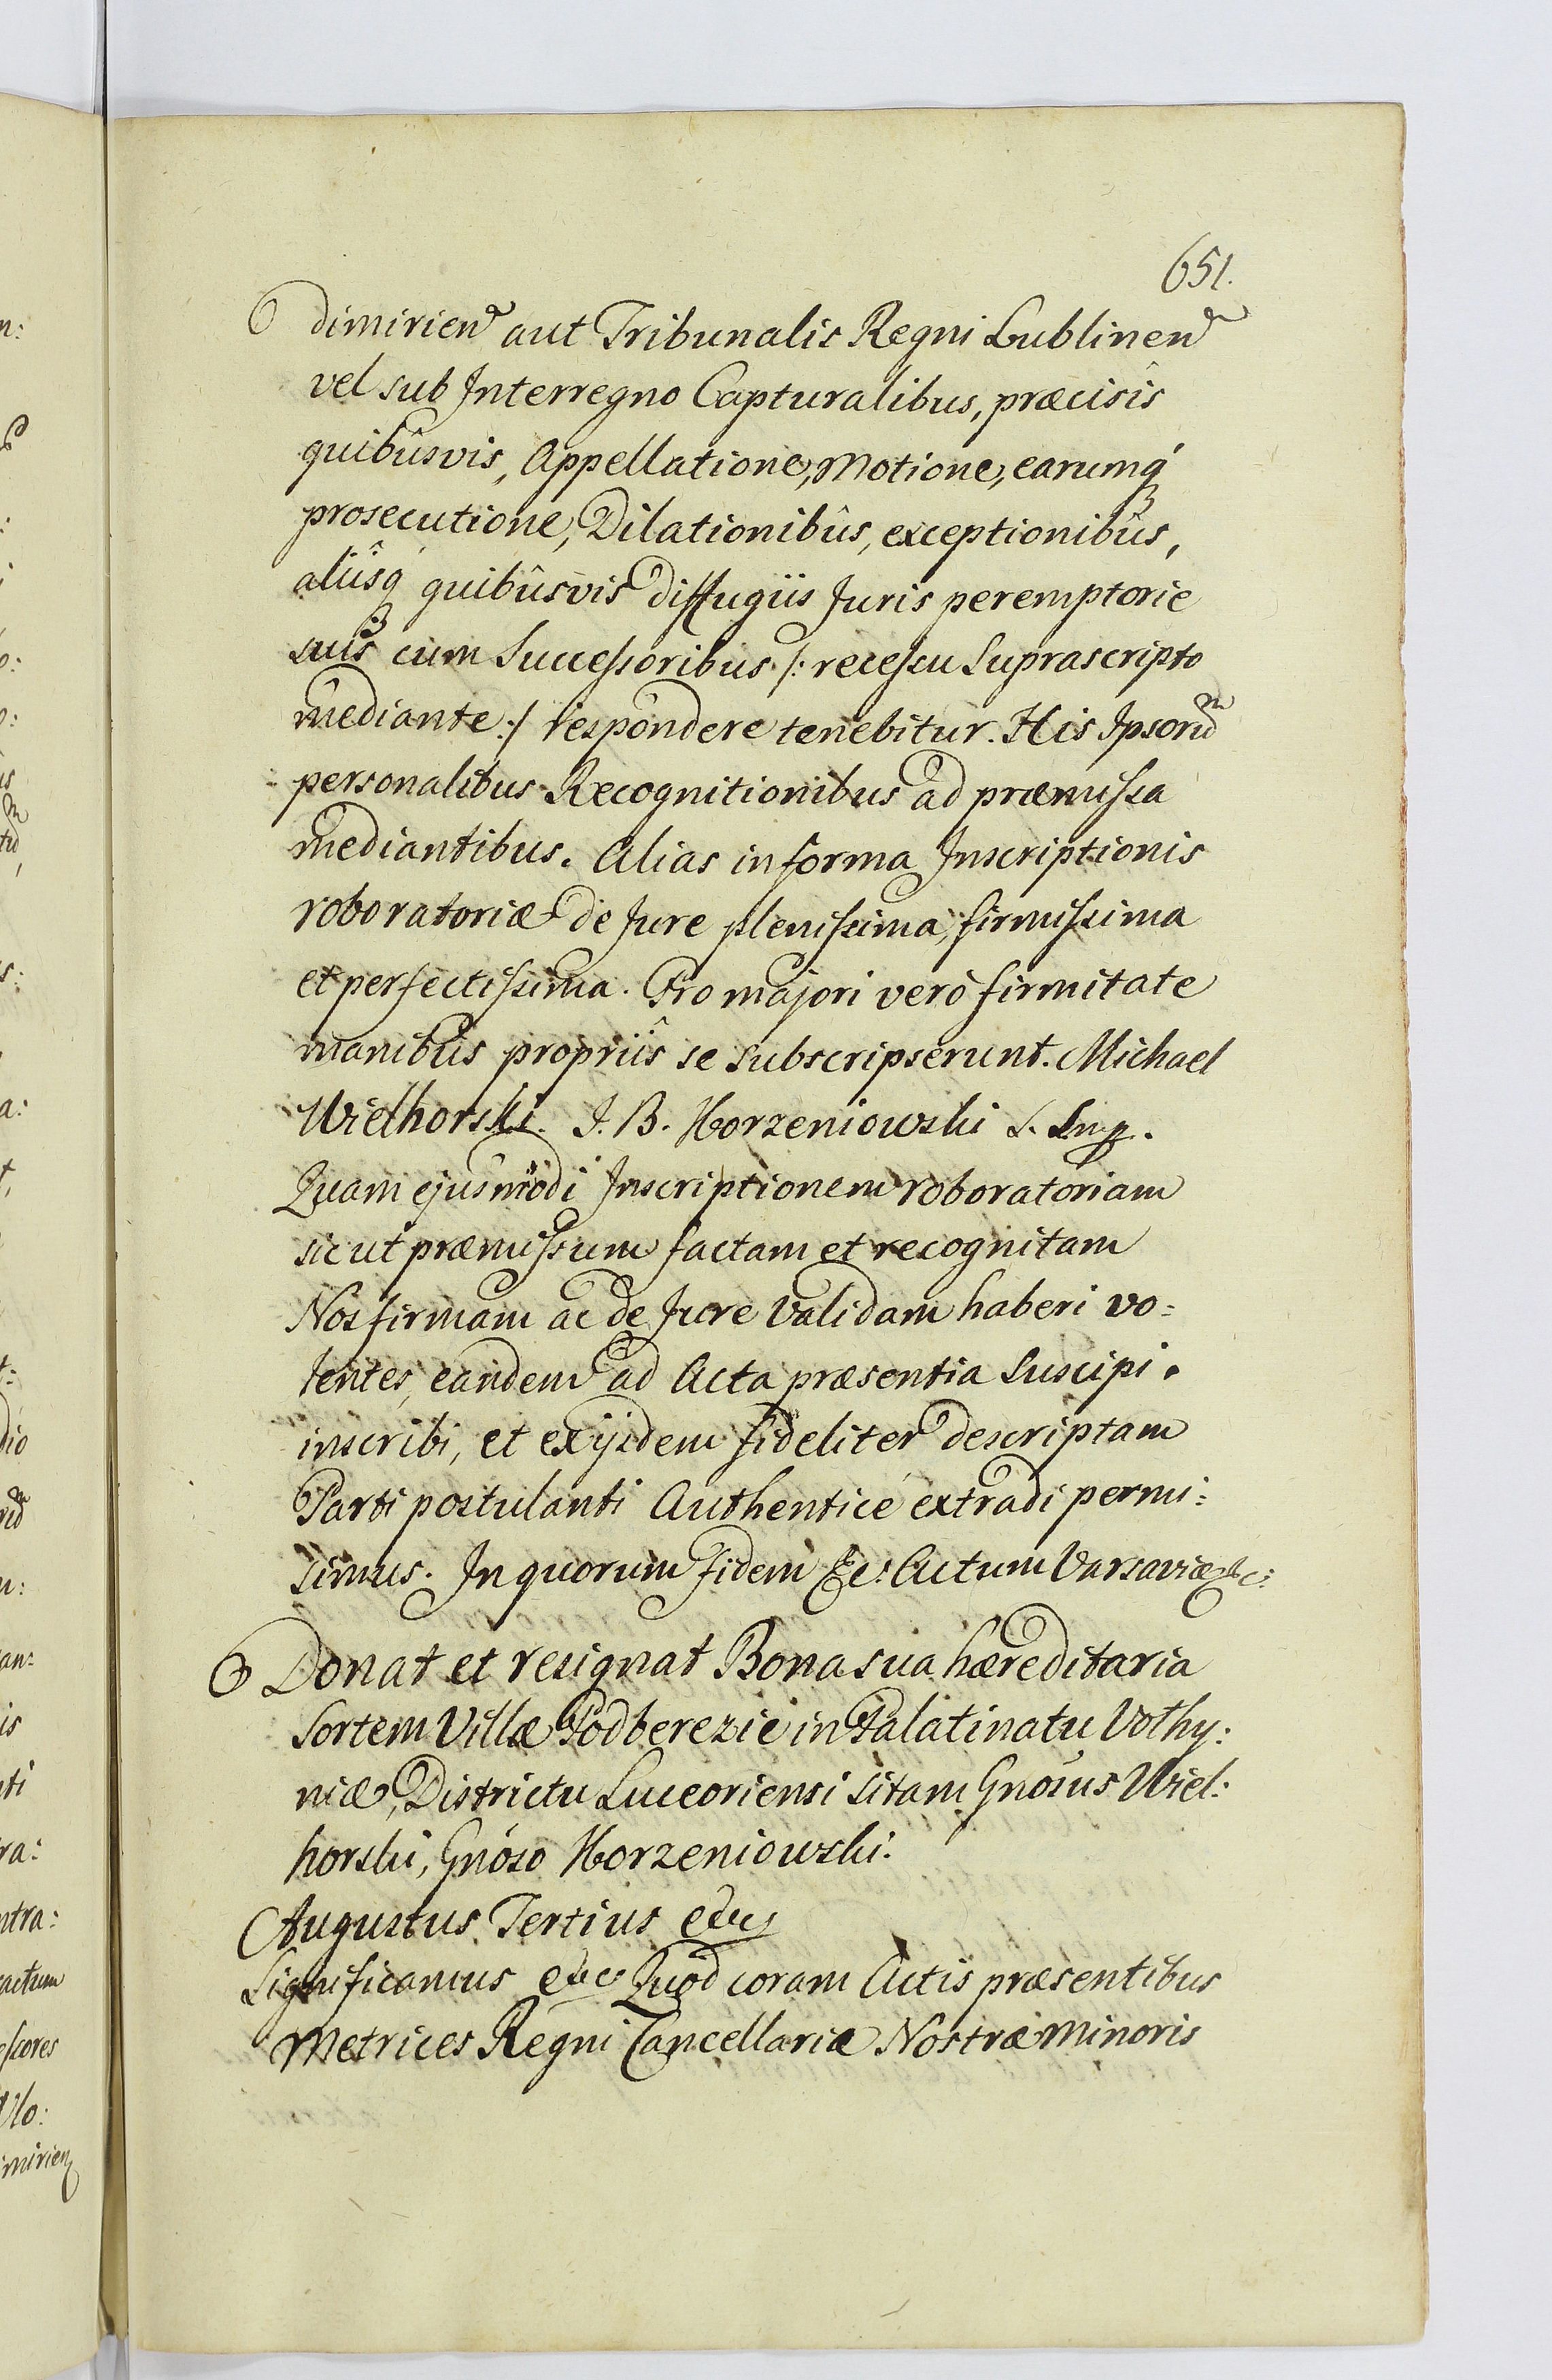 651.
dimirien aut Tribunalis Regni Lublinen
vel sub Interregno Capturalibus, præcisis
quibûsvis, Appellatione, Motione, earumq́
prosecutione, Dilationibûs, exceptionibûs,
aliîsq́ quibûsvis diffugiis Juris peremptorie
suis cum Successoribus /: recessu Suprascripto
mediante :/ respondere tenebitur. His Ipsorũ
personalibus Recognitionibus ad præmissa
mediantibus. Alias in forma Inscriptionis
roboratoriæ de Jure plenissima, firmissima
et perfectissima. Pro majori verò firmitate
manibûs propriîs se subscripserunt. Michael
Wielhorski. J. B. Korzeniowski
Quam ejusmodi Inscriptionem roboratoriam
sicut præmissum factam et recognitam
Nos firmam ac de Jure validam haberi vo=
lentes, eandem ad Acta præsentia Suscipi.
inscribi, et ex ijsdem fideliter descriptam
Parti postulanti Authenticè extradi permi=
simus. In quorum fidem &c: Actum Varsaviæ &c:
Donat et resignat Bona sua hæreditaria
Sortem Villæ Podberezie in Palatinatu Volhy:
niæ, Districtu Luceoriensi sitam Gnosus Wiel:
horski, Gnóso Korzeniowski.
Augustus Tertius etc.
Significamus etc. Quod coram Actis præsentibus
Metrices Regni Cancellariæ Nostræ Minoris